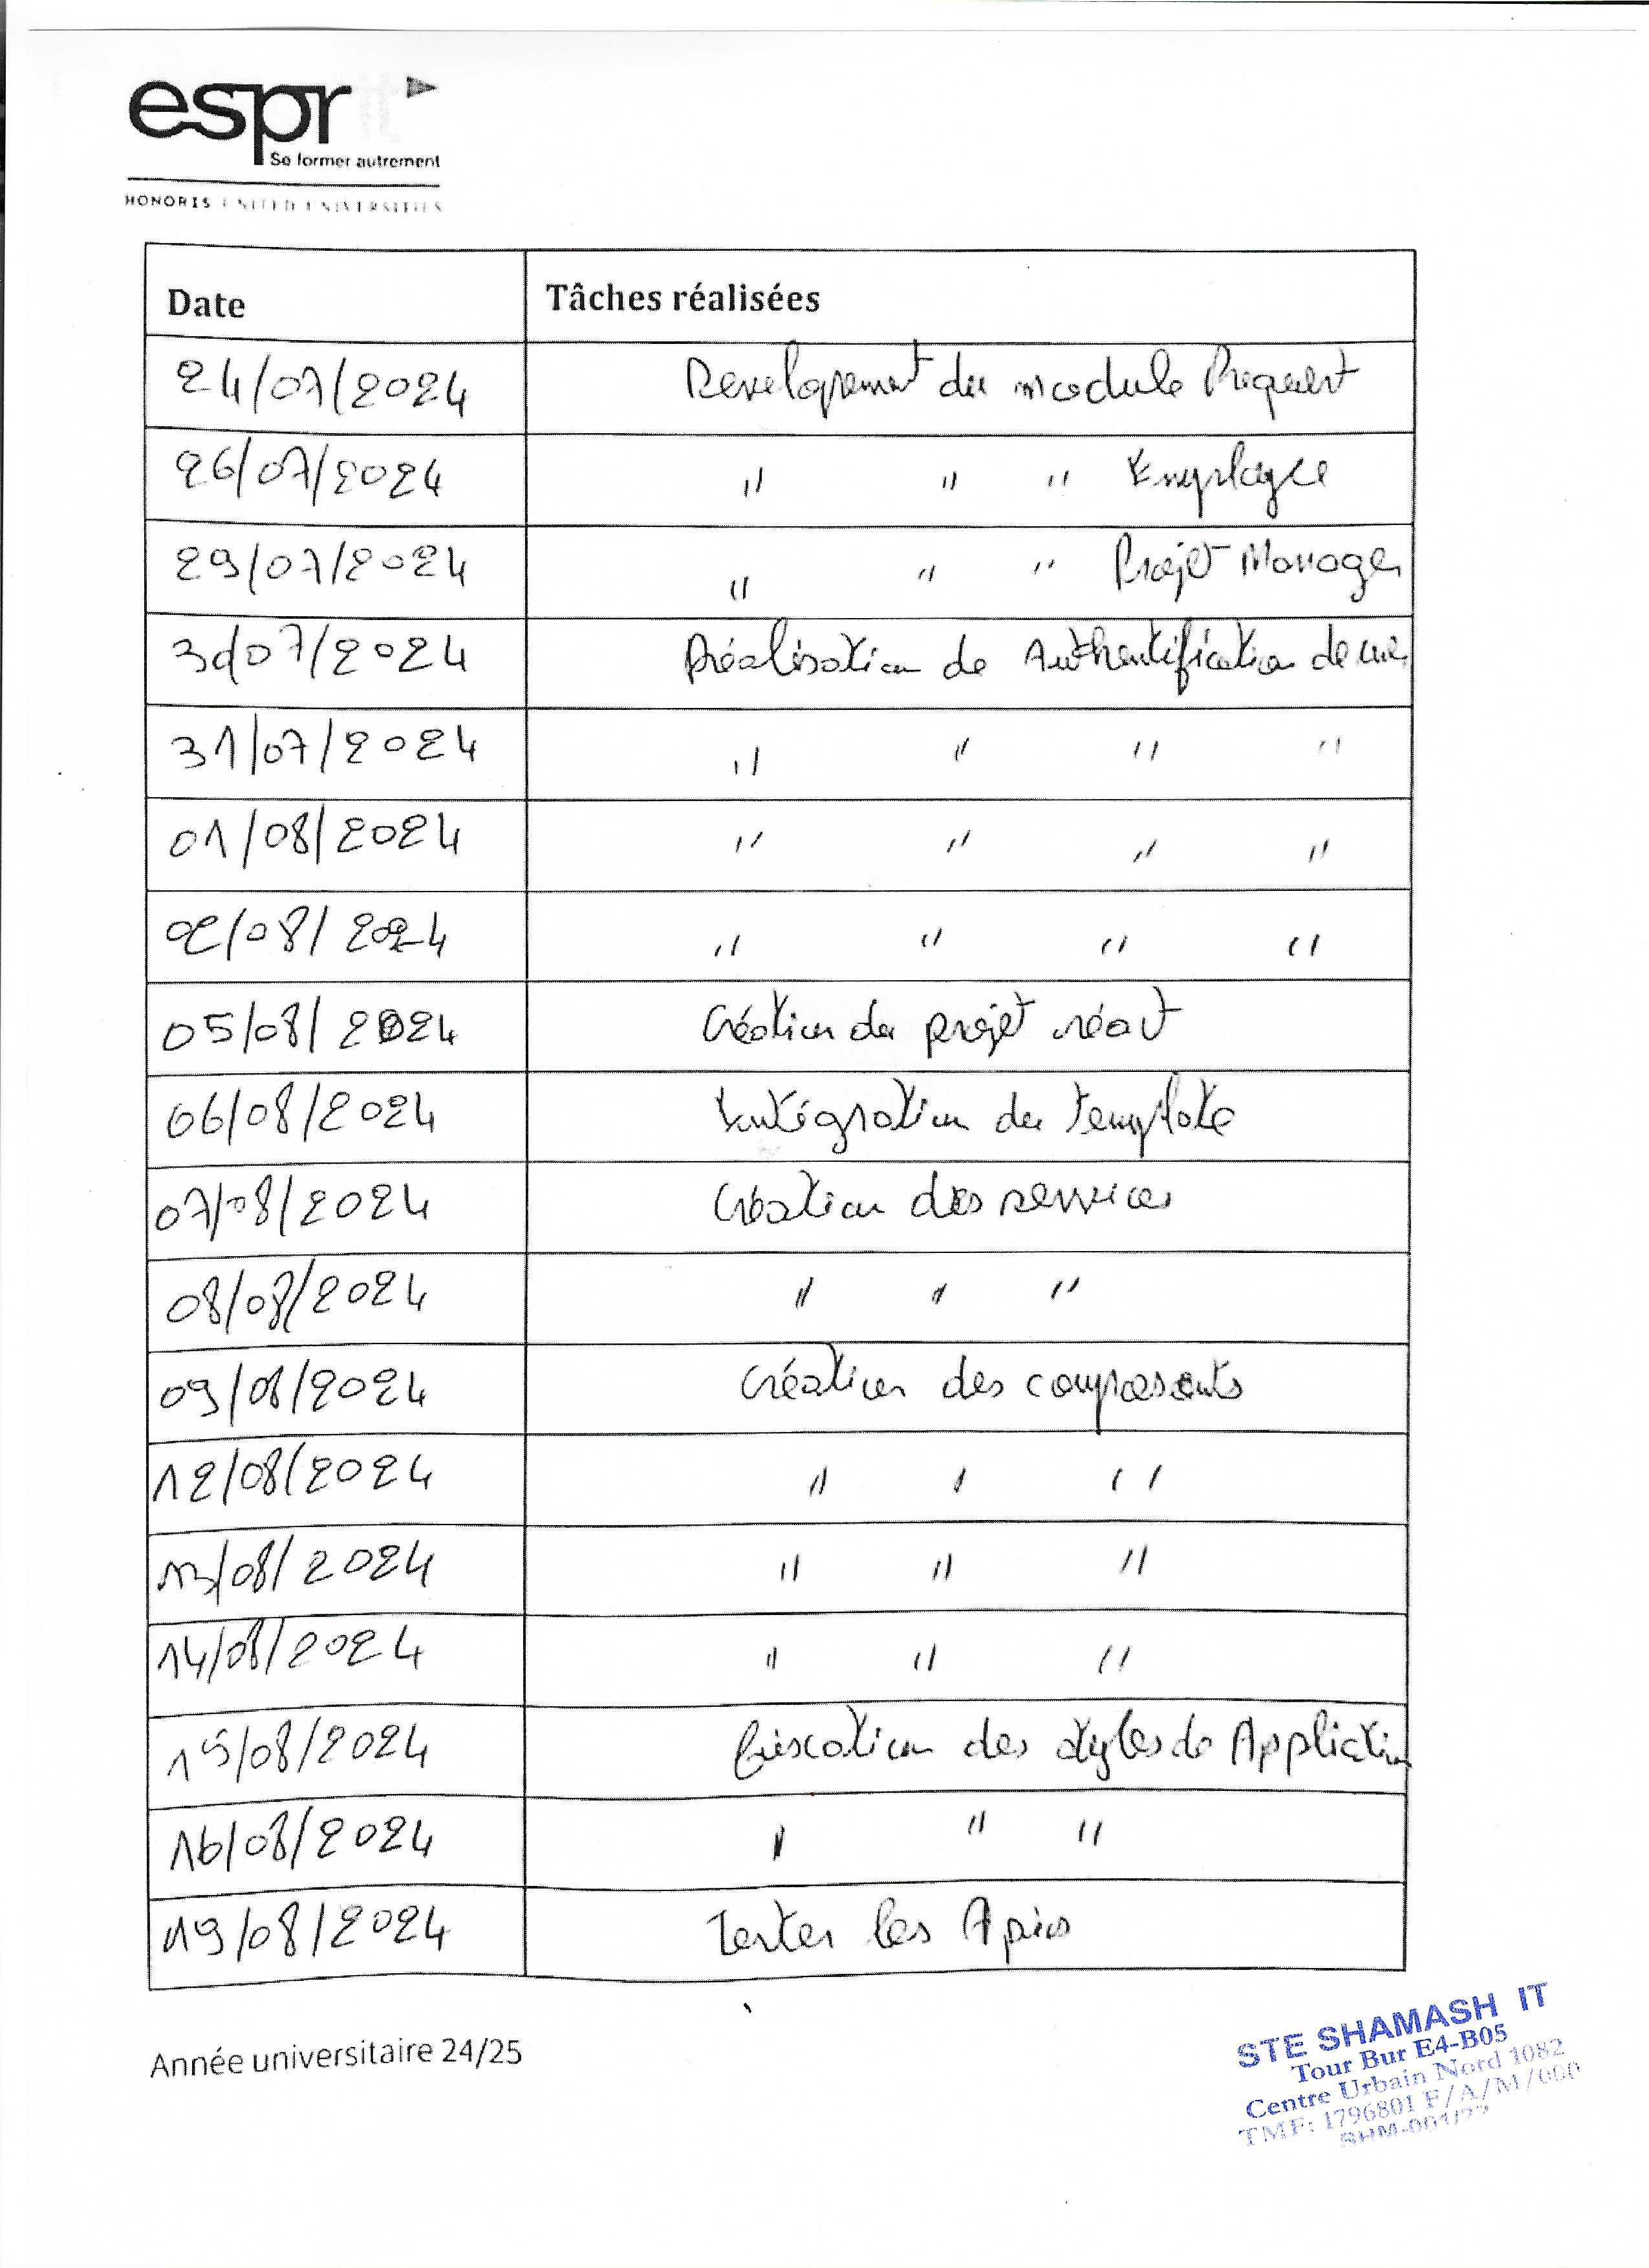 esprit
Se former autrement
HONORIS UNITED UNIVERSITIES
Date Tâches réalisées
24/07/2024 Developement du module Request
26/07/2024 " " " Employee
29/07/2024 " " " Projet Manager
30/07/2024 Réalisation de Authentification de
31/07/2024 " " " "
01/08/2024 " " " "
02/08/2024 " " " "
05/08/2024 Création du projet réact
06/08/2024 Intégration du template
07/08/2024 Création des services
08/08/2024 " " "
09/08/2024 Création des composants
12/08/2024 " " "
13/08/2024 " " "
14/08/2024 " " "
15/08/2024 fixcation des styles de Application
16/08/2024 " " "
19/08/2024 Tester les Apies
Année universitaire 24/25
STE SHAMASH IT
Tour Bur E4-B05
Centre Urbain Nord 1082
TMF: 1796801 F/A/M/000